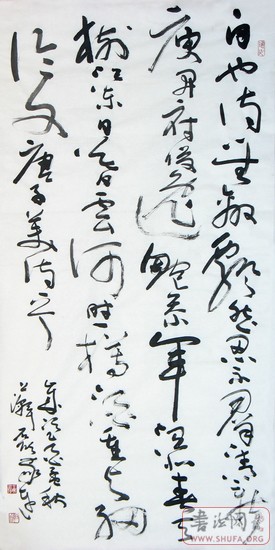 白也詩無敵飄然思不群清新
庾開府俊逸鮑參軍渭北春天
樹江東日暮雲何時一樽酒重與細
論文唐子美詩
書法网
WWW.SHUFA.ORG